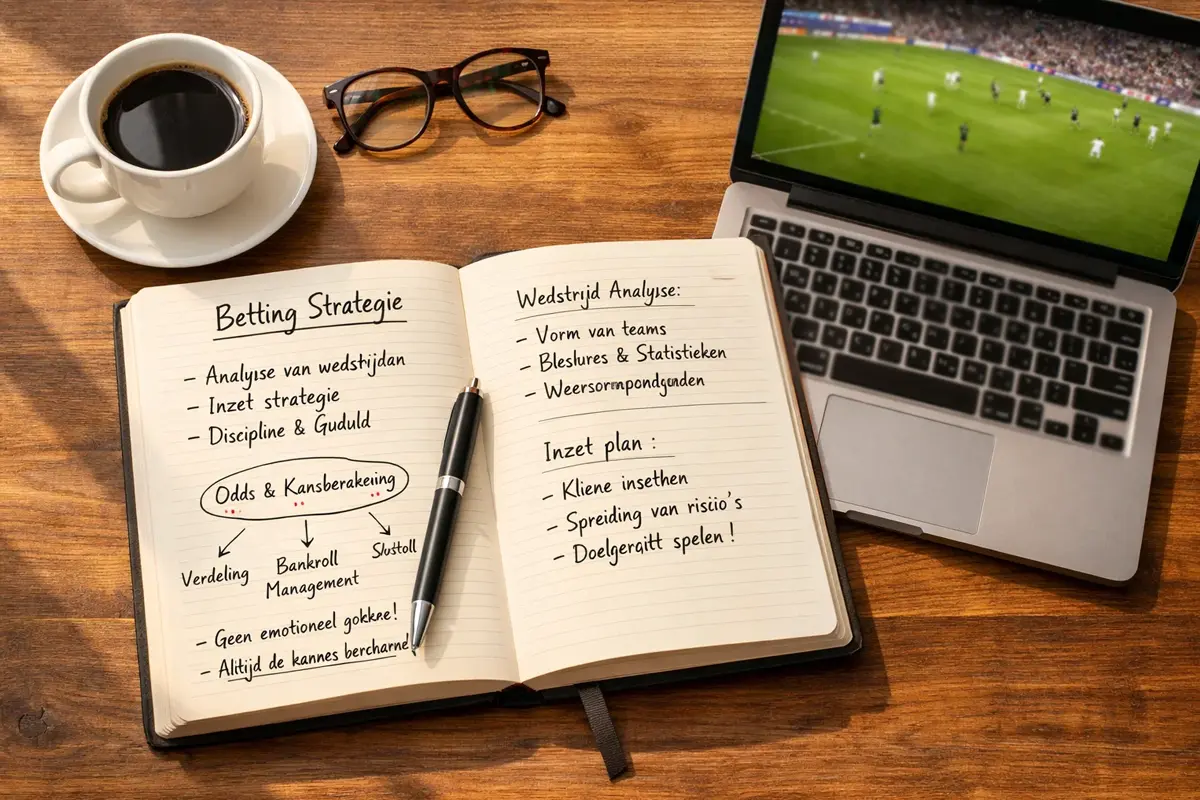 Betting Strategie
- Analyse van wedstijdan
- Inzet strategie
- Discipline & Guduld
Odds & Kansberakeiing
Verdeling
Bankroll
Management
Slustoll
- Geen emotioneel gokkne!
- Alitijd de kannes bercharne!
Wedstrijd Analyse:
- Vorm van teams
- Bleslures & Statistieken
- Weersornpondgunden
Inzet plan :
- Kliene insethen
- Spreiding van riscio's
- Doelgeraitt spelen!